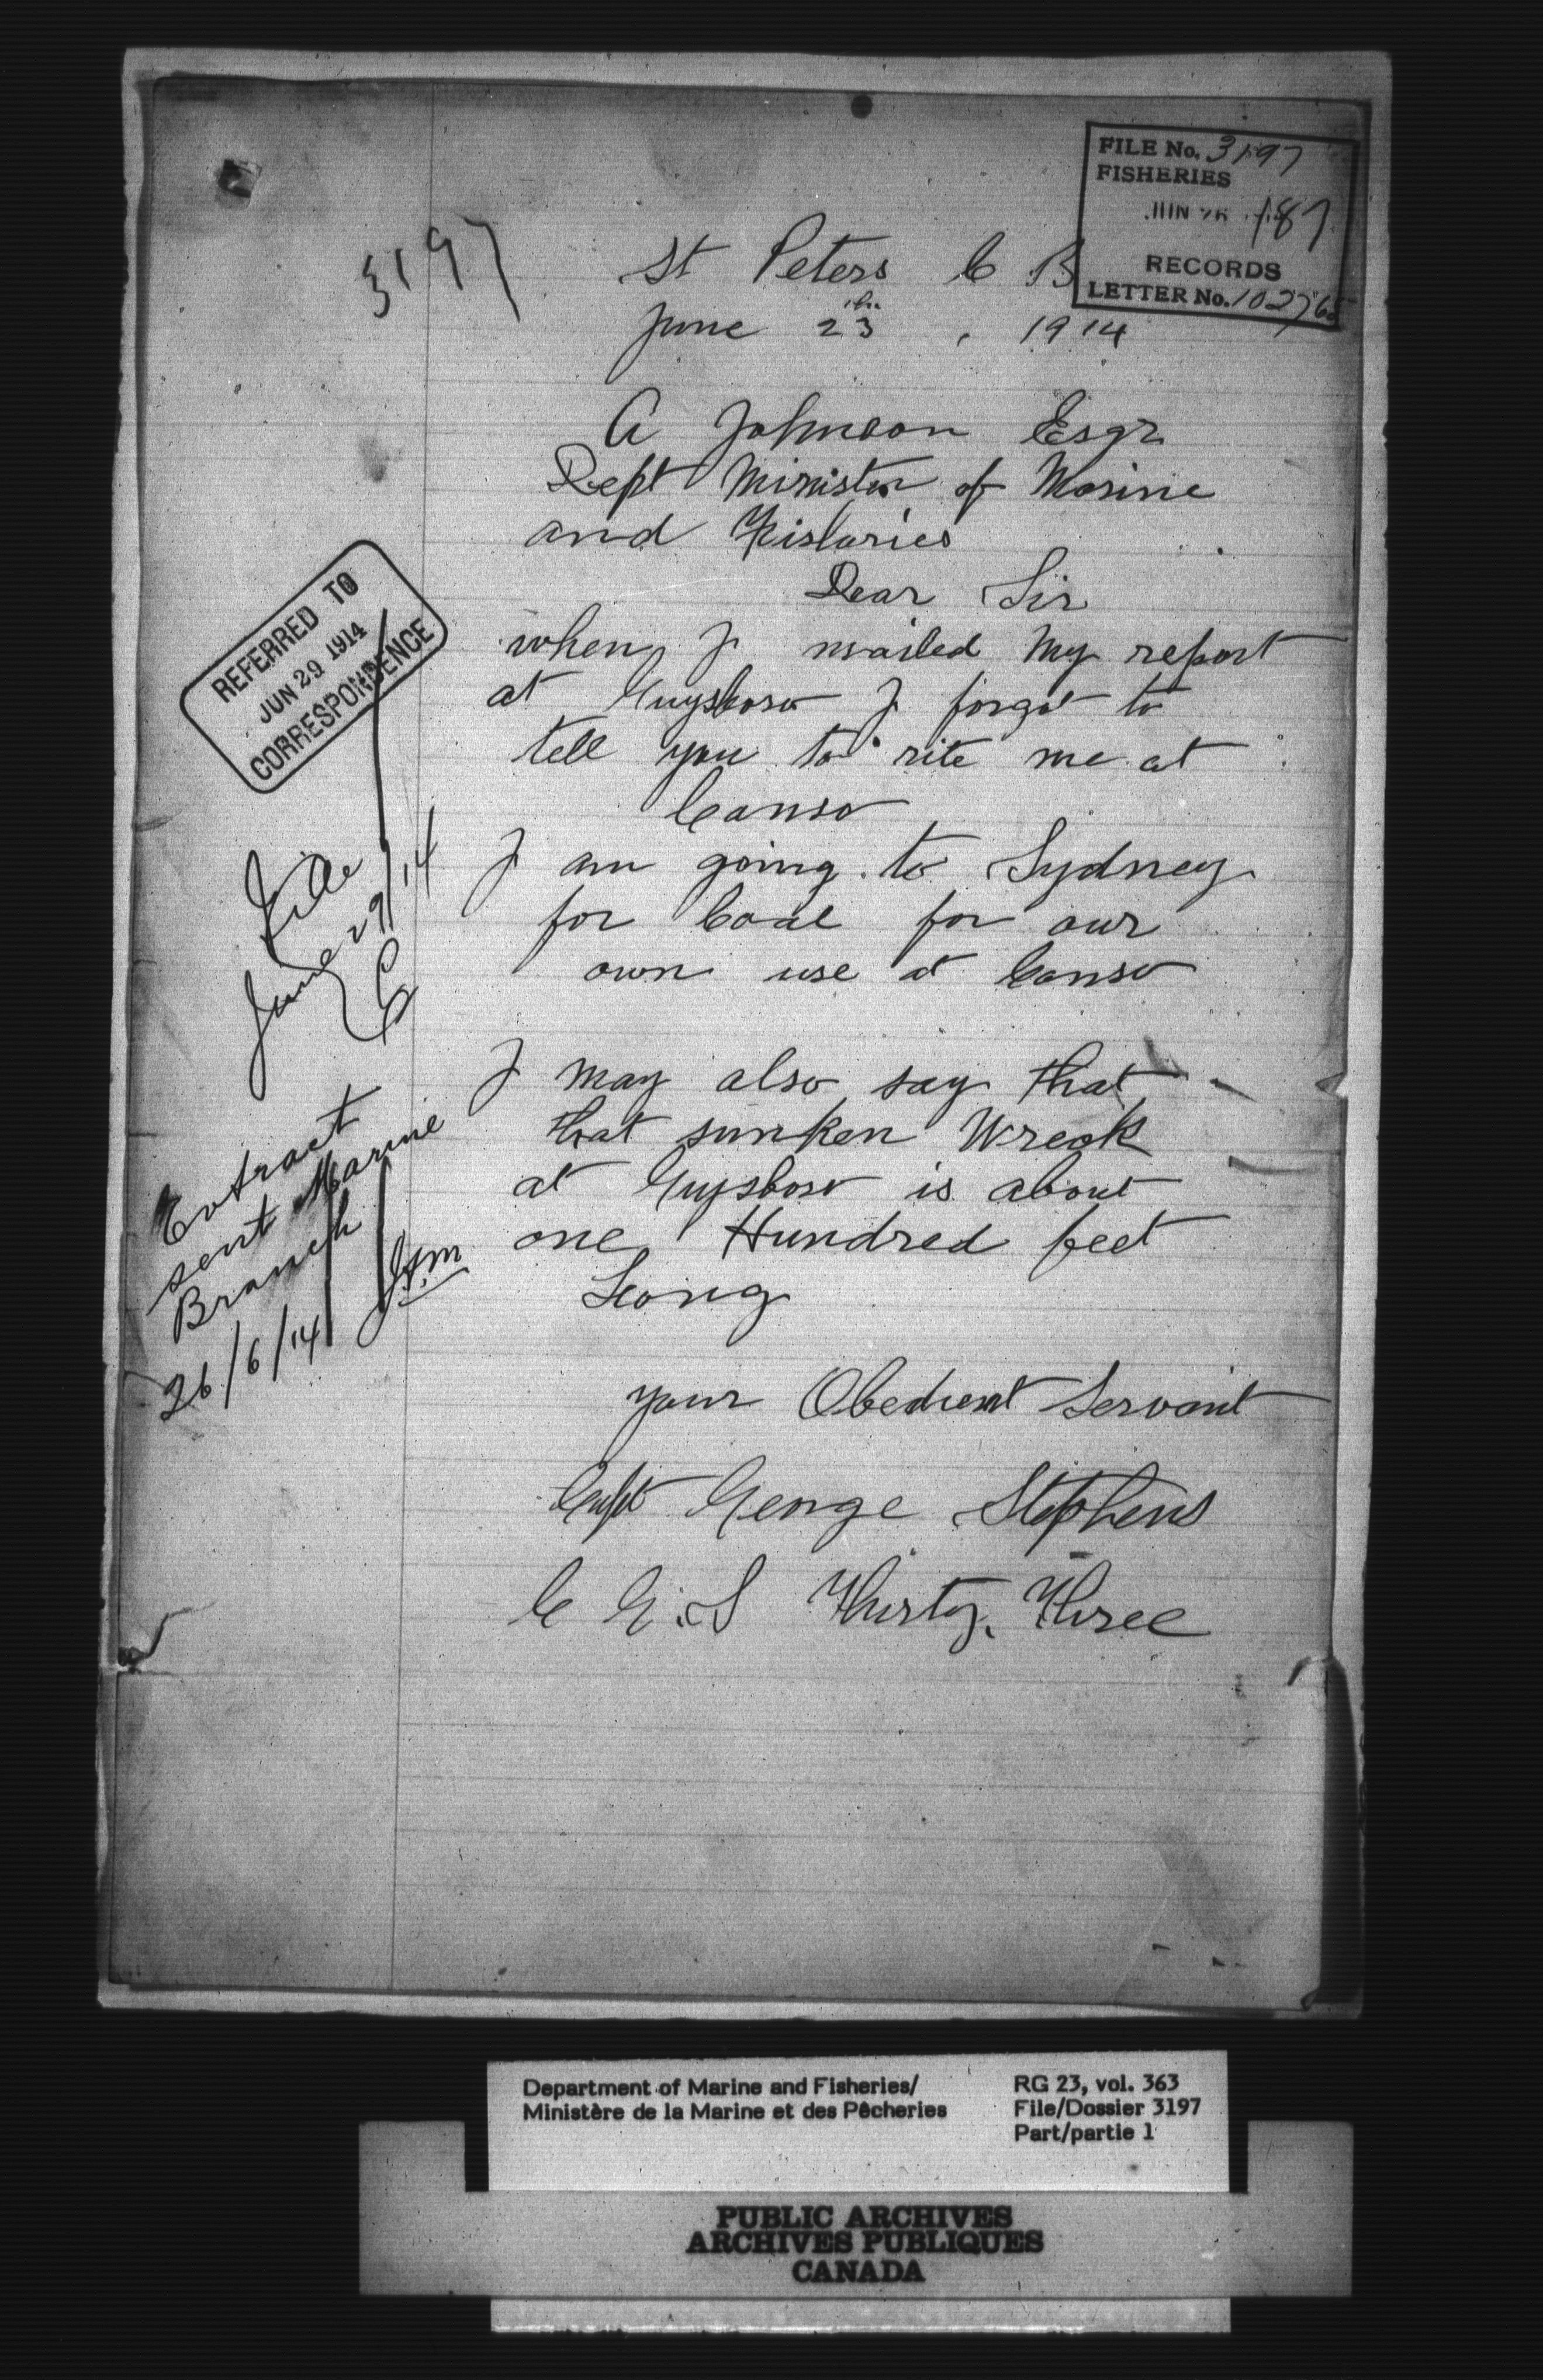 FILE No. 3197
FISHERIES
JUN 26 187
RECORDS
LETTER No. 102765
3197
St Peters C B
June 23, 1914
A Johnson Esqr
Dept Minister of Marine
and Fisharies
Dear Sir
when I mailed my report
at Guysboro I forgot to
tell you to rite me at
Canso
I am going to Sydney
for Coal for our
own use at Canso
I may also say that
that sunken Wreck
at Guysboro is about
one Hundred feet
Long
your Obedient Servant
Capt George Stephens
C G. S Thirty. Three
REFERRED TO
JUN 29 1914
CORRESPONDENCE
File
June 29/14
Extract
sent Marine
Branch
26/6/14
Department of Marine and Fisheries/
Ministère de la Marine et des Pêcheries
RG 23, vol. 363
File/Dossier 3197
Part/partie 1
PUBLIC ARCHIVES
ARCHIVES PUBLIQUES
CANADA